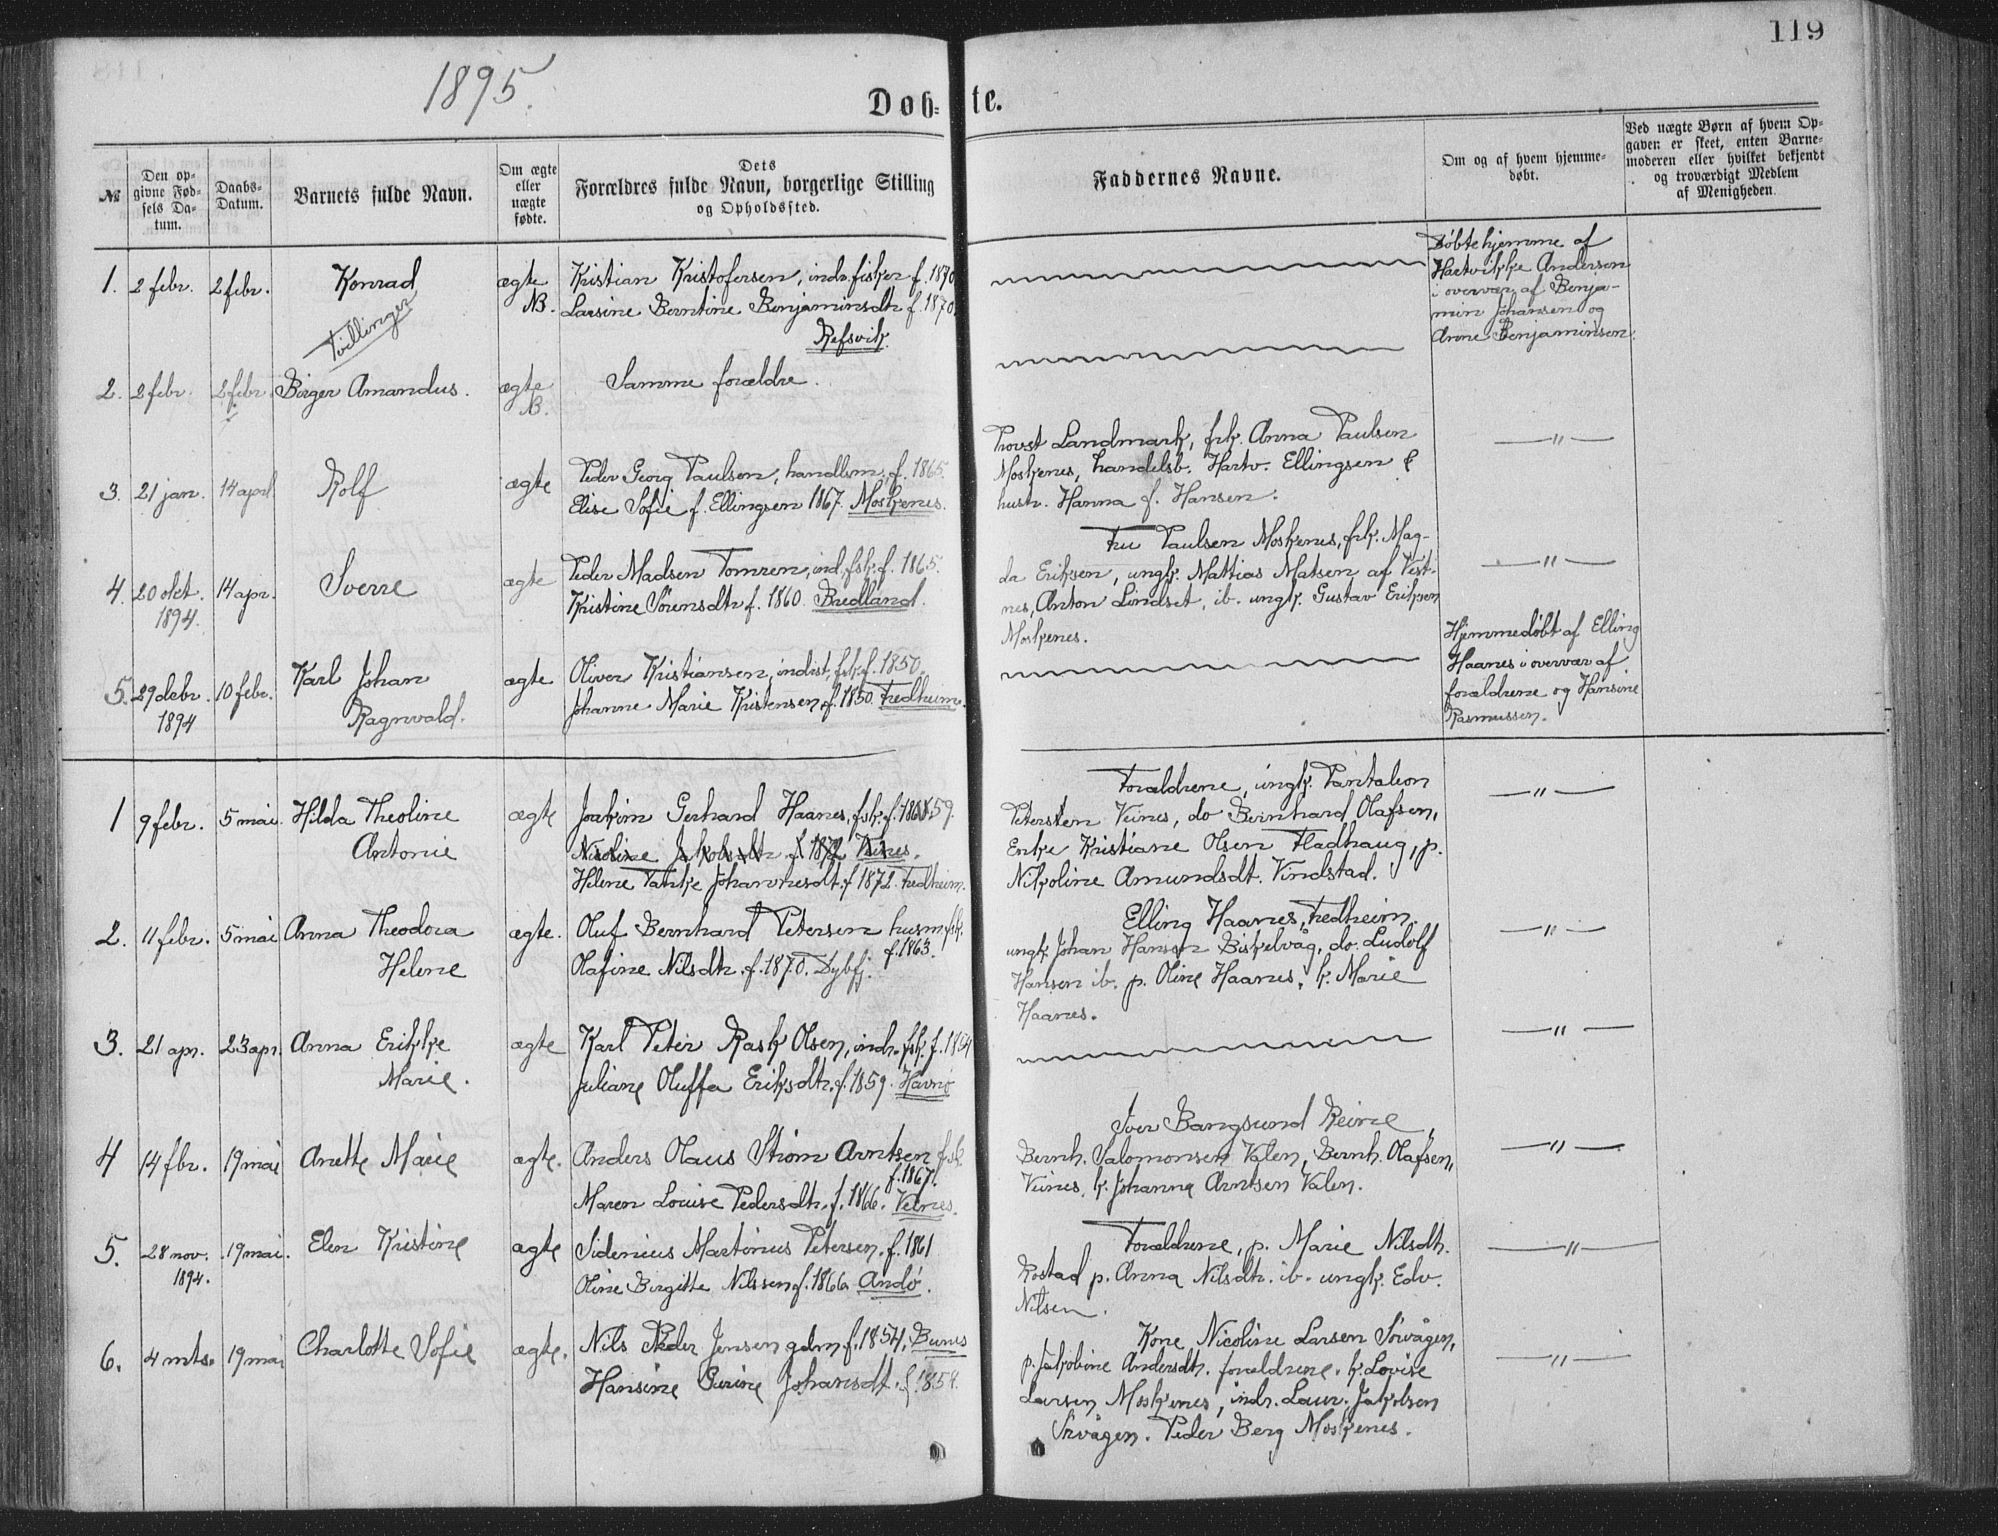 119
1895.
Døb= te.
№
Den op-
givne Fød-
sels Da-
tum.
Daabs-
Datum.
Barnets fulde Navn.
Om ægte
eller
uægte
fødte.
Dets
Forældres fulde Navn, borgerlige Stilling
og Opholdssted.
Faddernes Navne.
Om og af hvem hjemme-
døbt.
Ved uægte Børn af hvem Op-
gaven er skeet, enten Barne-
moderen eller hvilket bekjendt
og troværdigt Medlem
af Menigheden.
1. 2 febr. 2 febr. Konrad ægte Kristian Kristofersen, indr. fisker f. 1870
NB. Larsine Berntine Benjaminsdtr f. 1870.
Tvillinger
Refsvik.
Døbte hjemme af
Hartvikke Andersen
i overvær af Benja-
min Johansen og
Anne Benjaminsen.
2. 2 febr. 2 febr. Birger Amandus. ægte Samme forældre.
NB.
3. 21 jan. 14 april Rolf ægte Peder Georg Paulsen, handlsm. f. 1865.
Elise Sofie f. Ellingsen 1867. Moskenes.
Provst Landmark, frk. Anna Paulsen
Moskenes, handelsb. Hartv. Ellingsen &
hustr. Hanna f. Hansen.
—"—
4. 20 okt. 14 apr. Sverre ægte Peder Madsen Tomren, ind. fsk. f. 1865.
1894. Kristine Sörensdtr f. 1860. Bredland.
Fru Paulsen Moskenes, frk. Mag-
da Eriksen, ungk. Mattias Matsen af Vest-
nes, Anton Lindset, ib. ungk. Gustav Eriksen
Moskenes.
—"—
5. 29 debr. 10 febr. Karl Johan ægte Oliver Kristiansen, indrst. fsk. f. 1850.
1894 Ragnvald. Johanne Marie Kristensen f. 1850. Fredheim.
Hjemmedøbt af Elling
Haanes i overvær af
forældrene og Hansine
Rasmussen.
1 9 febr. 5 mai. Hilda Theoline ægte Joakim Gerhard Haanes, fsk. f. 1859.
Antonie Nicoline Jakobsdtr. f 1872 Veines.
Helene Tanke Johannesdt. f 1872. Fredheim.
Forældrene, ungk. Pantaleon
Petersen Veines, do Bernhard Olafsen,
Enke Kristiane Olsen Fladhaug, p.
Nikoline Amundsdt. Vindstad.
—"—
2. 11 febr. 5 mai Anna Theodora ægte. Oluf Bernhard Petersen husm. fsk.
f. 1863.
Helene Olafine Nilsdtr. f. 1870. Dybfj.
Elling Haanes, Fredheim.
ungk. Johan Hansen Biskelvåg, do. Ludolf
Hansen ib. p. Oline Haanes, k. Marie
Haanes.
—"—
3. 21 apr. 23 apr. Anna Erikke ægte Karl Peter Rask Olsen, indr. fsk. f. 1854
Marie. Juliane Oluffa Eriksdtr. f. 1859. Havnö
—"—
4 14 fbr. 19 mai Anette Marie ægte. Anders Olaus Strøm Arntsen fsk.
f. 1867.
Maren Louise Pedersdtr. f. 1866. Veines.
Iver Bangsund Reine,
Bernh. Salomonsen Valen, Bernh. Olafsen,
Veines, k. Johanna Arntsen Valen.
—"—
5. 28 nov. 19 mai. Elen Kristine ægte Sidenius Martinus Petersen. f. 1861
1894. Oline Birgitte Nilssen f. 1866. Andö.
Forældrene, p. Marie Nilsdtr.
Rostad p. Anna Nilsdtr. ib. ungk. Edv.
Nilsen.
—"—
6. 4 mts. 19 mai Charlotte Sofie ægte. Nils Peder Jensen gdm f. 1854, Bunes
Hansine Gurine Johansdt. f. 1854.
Kone Nicoline Larsen Sörvågen,
p. Jakobine Andersdtr. forældrene. k. Lovise
Larsen Moskenes, indr. Laur. Jakobsen
Sörvågen. Peder Berg Moskenes.
—"—